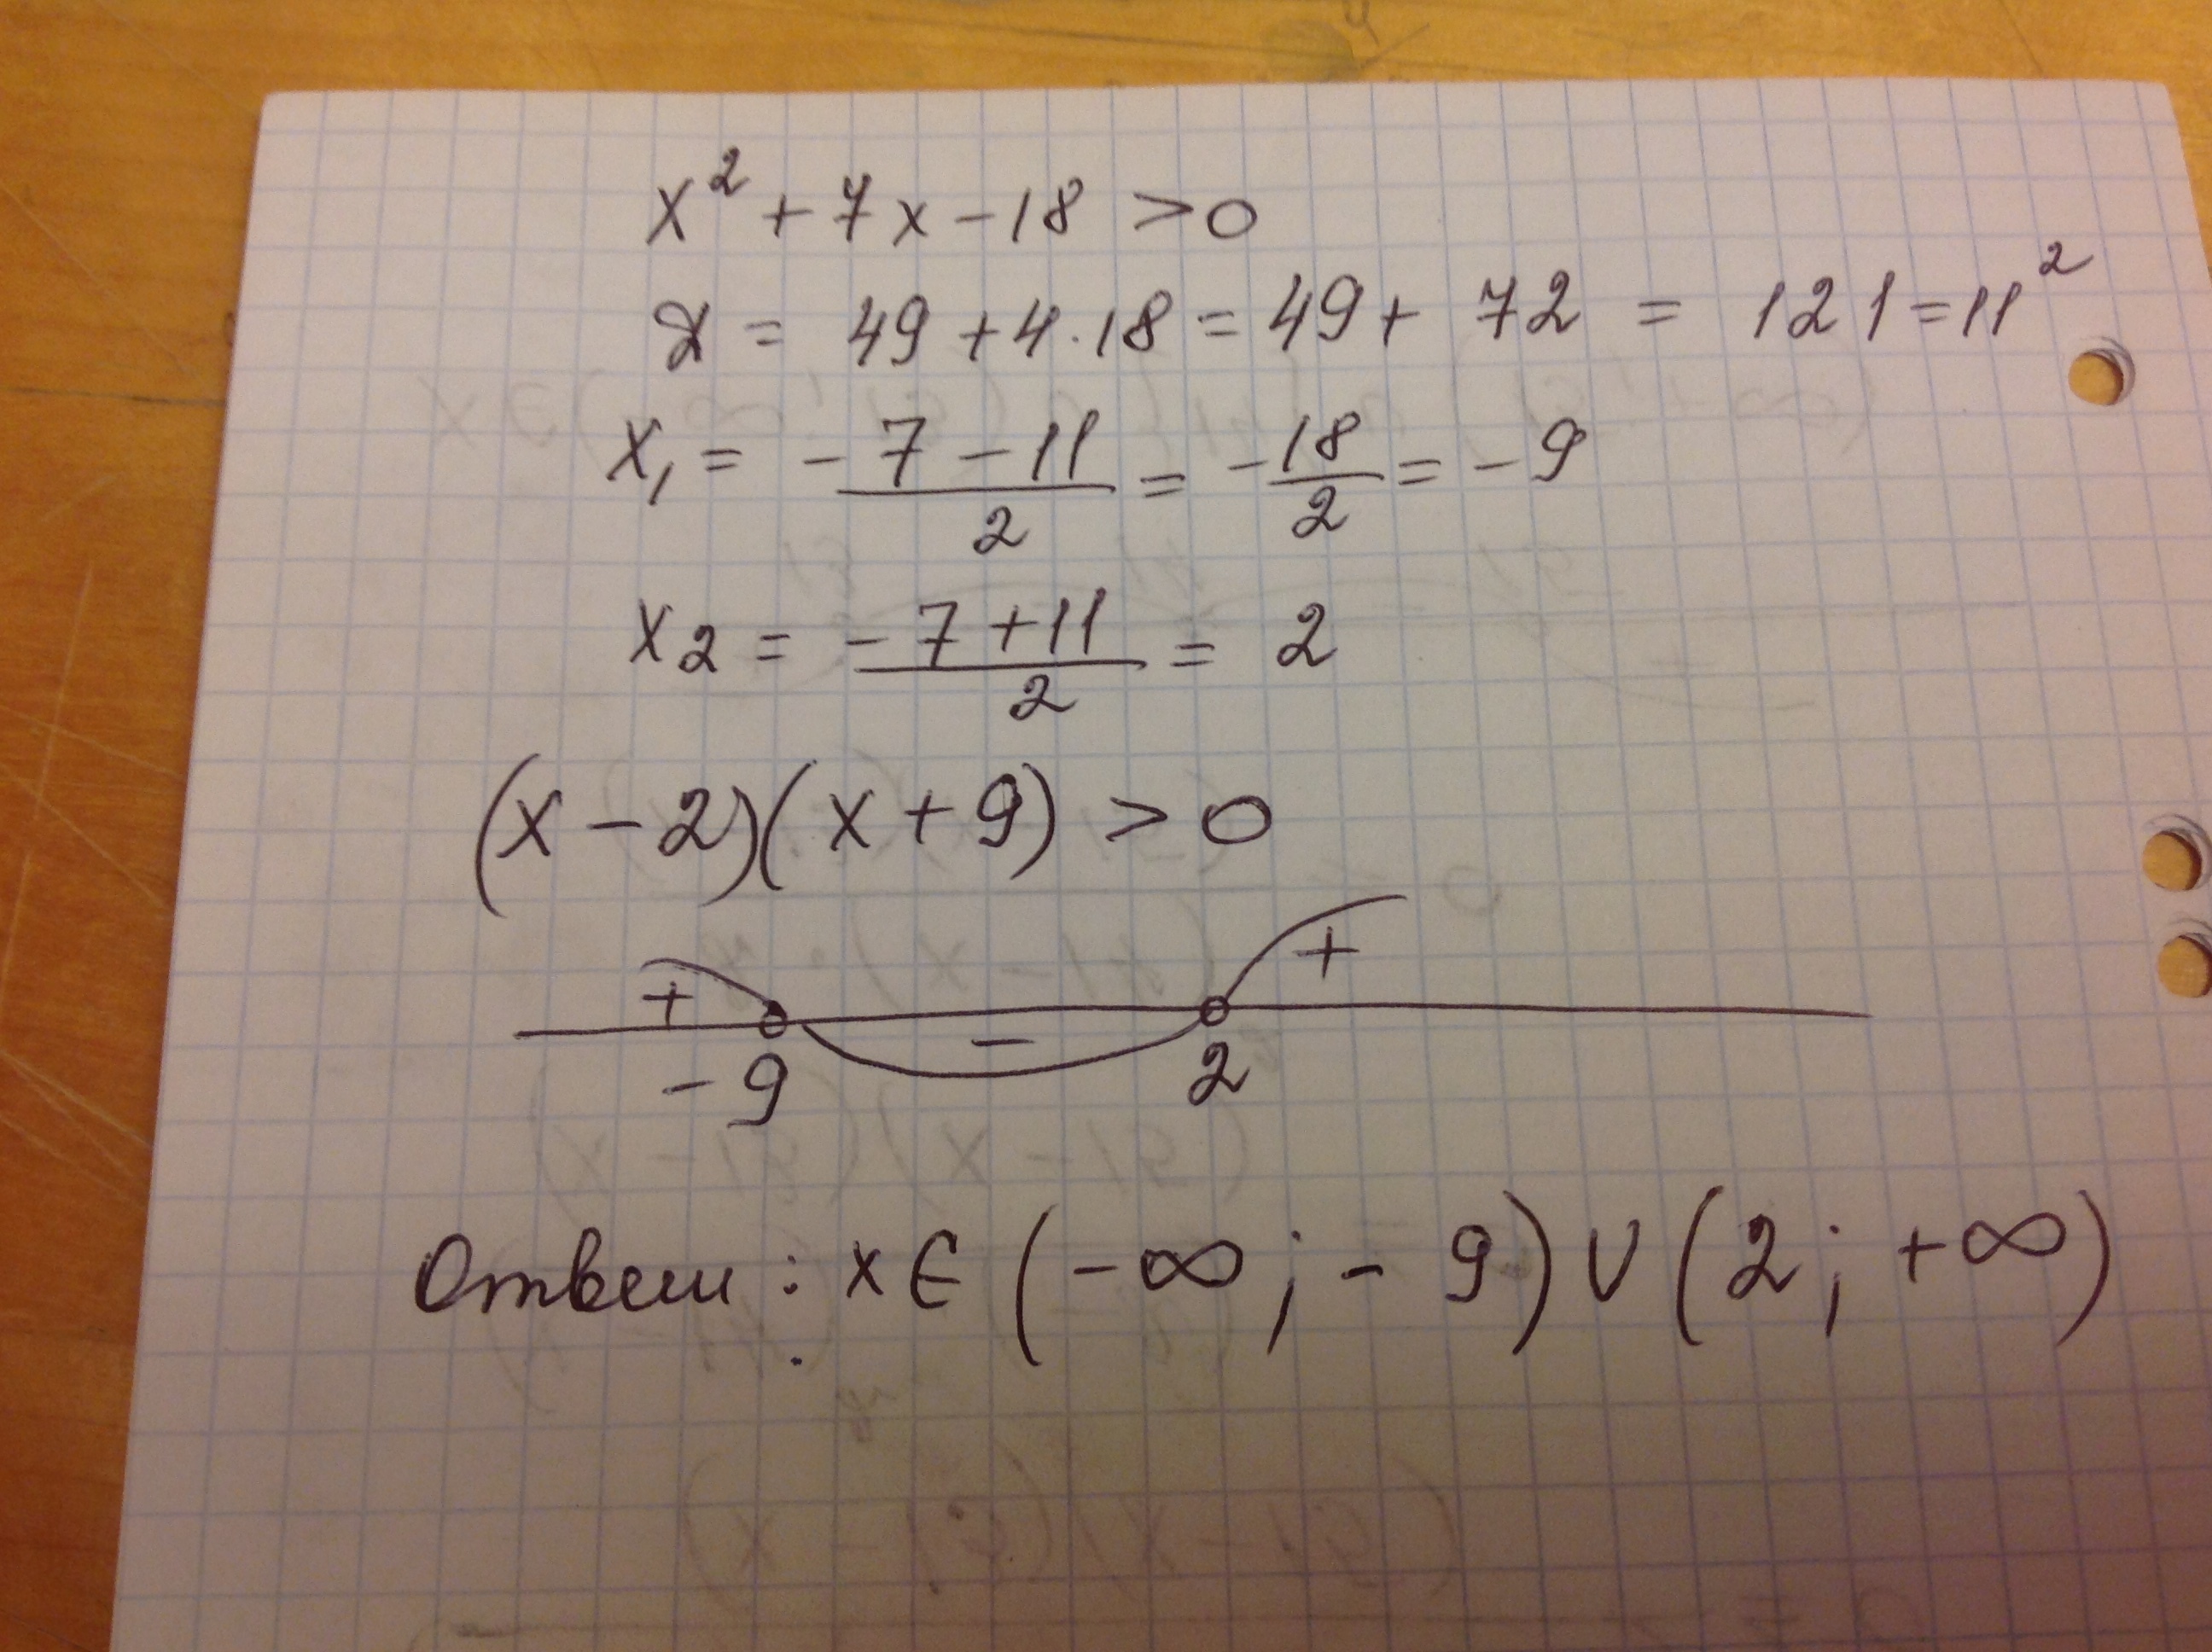 x² + 7x - 18 > 0
D = 49 + 4·18 = 49 + 72 = 121 = 11²
x₁ = (-7 - 11)/2 = -18/2 = -9
x₂ = (-7 + 11)/2 = 2
(x - 2)(x + 9) > 0
+ - +
-9 2
Ответ: x ∈ (-∞; -9) ∪ (2; +∞)